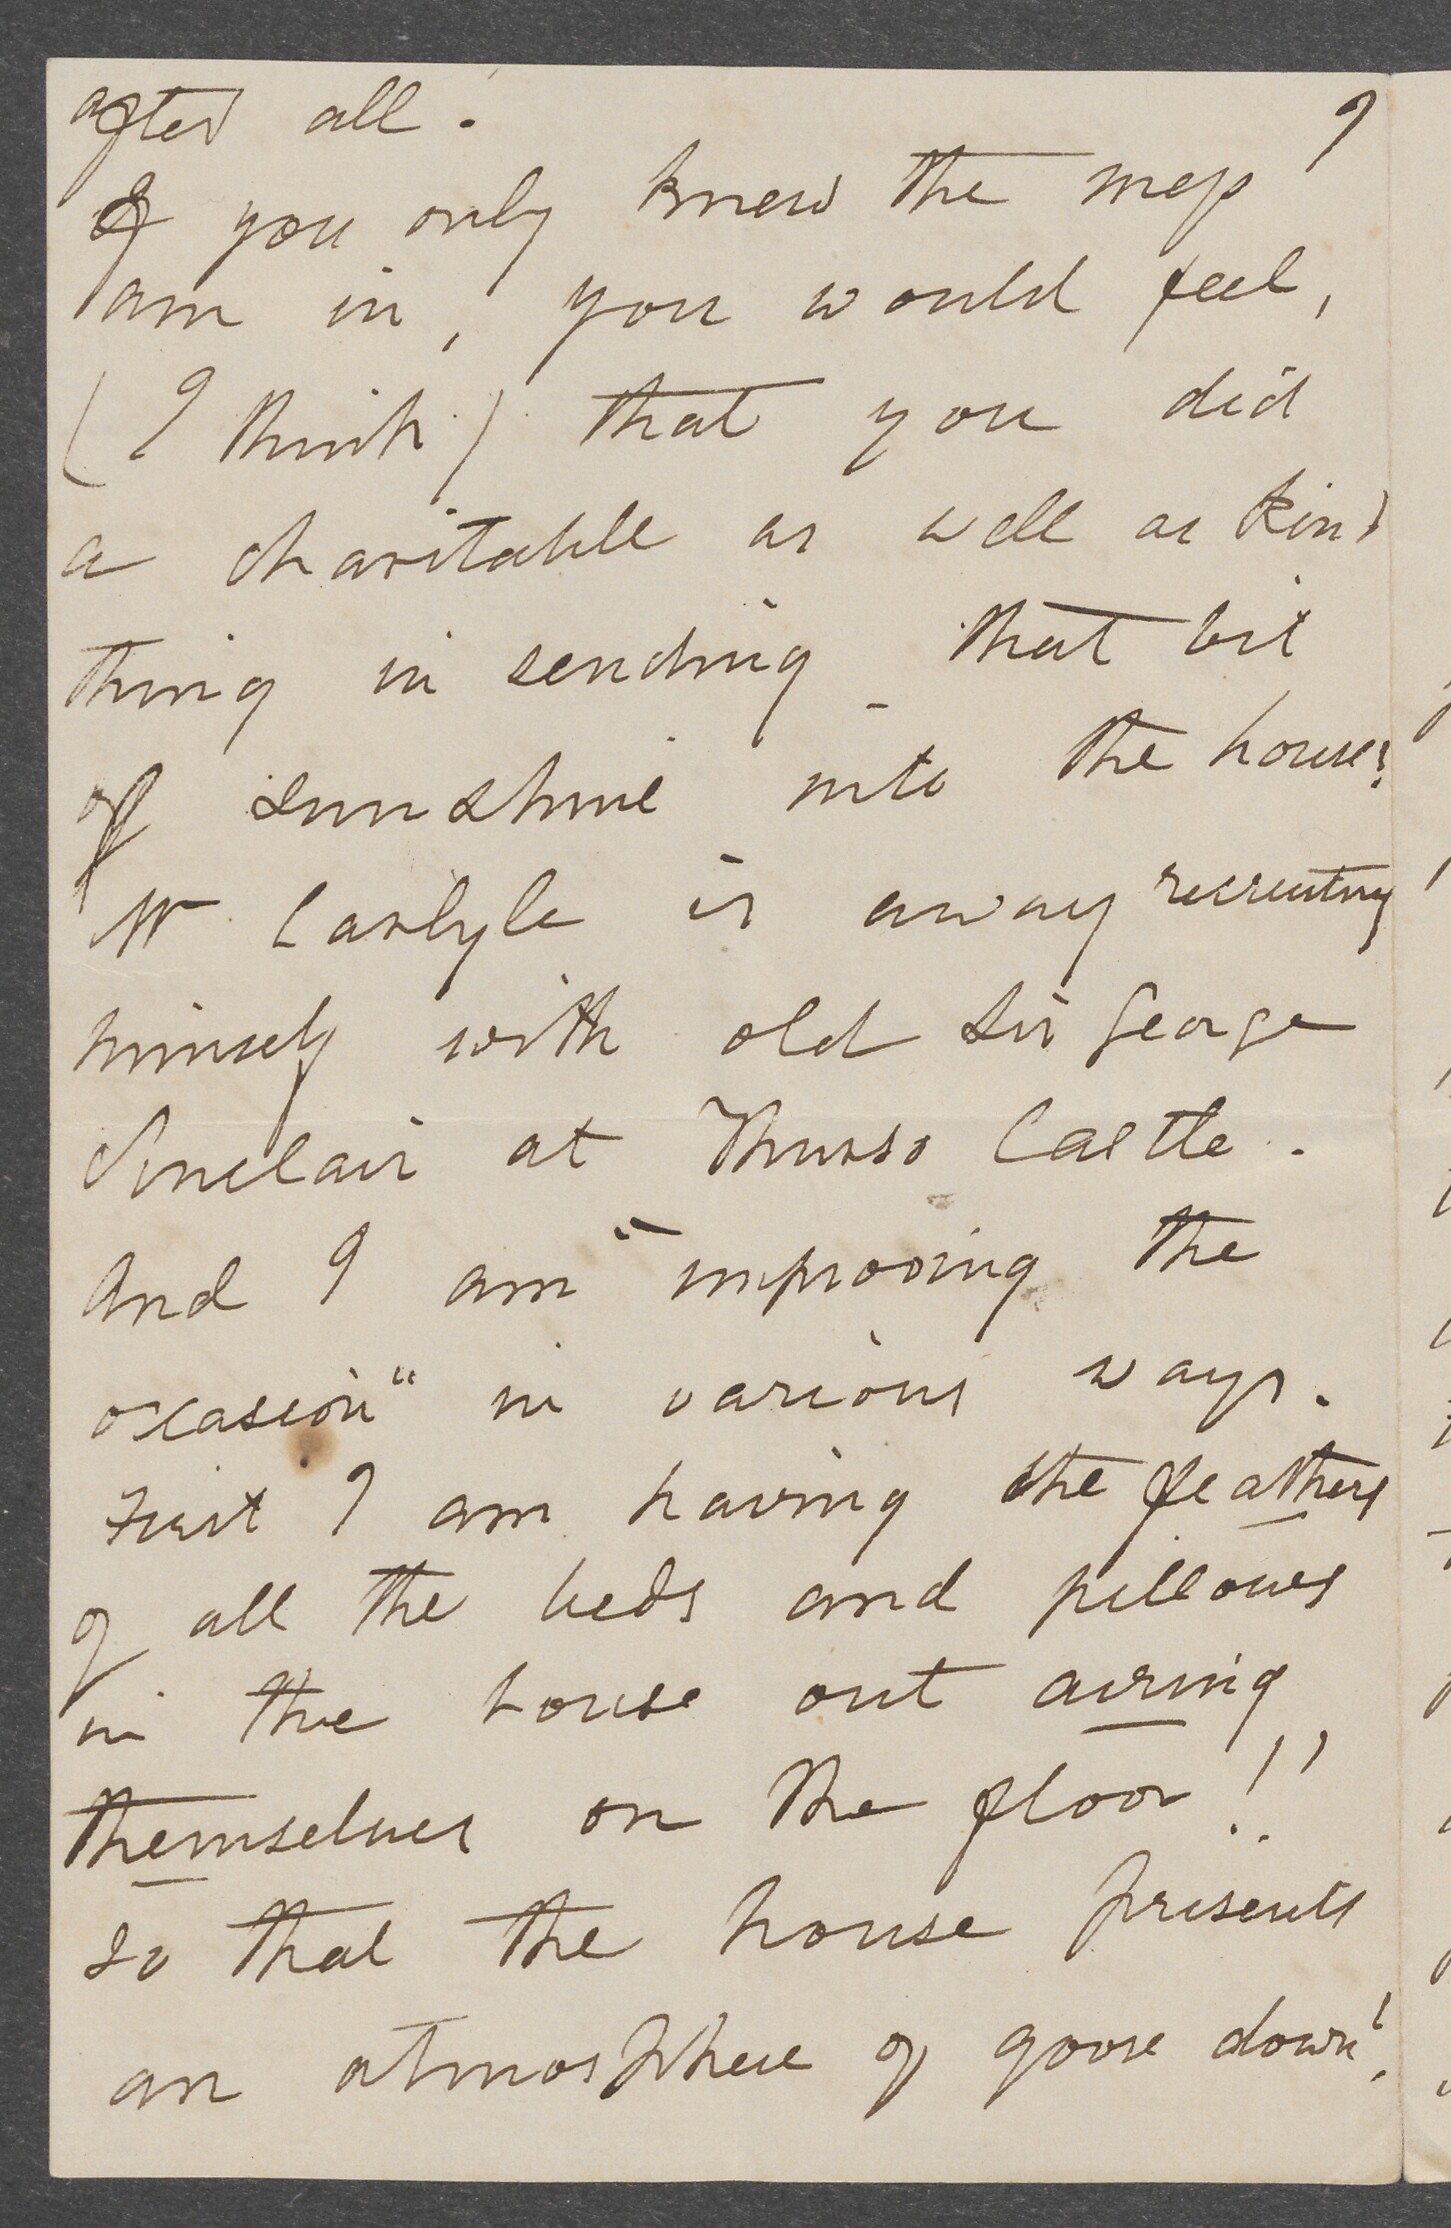 after all.
If you only knew the mess I
am in, you would feel,
(I think) that you did
a charitable as well as kind
thing in sending that bit
of sunshine into the house!
Mr Carlyle is away recruiting
himself with old Sir George
Sinclair at Thurso Castle.
And I am "improving the
occasion" in various ways.
First I am having the feathers
of all the beds and pillows
in the house out airing
themselves on the floor!!
so that the house presents
an atmosphere of goose down!